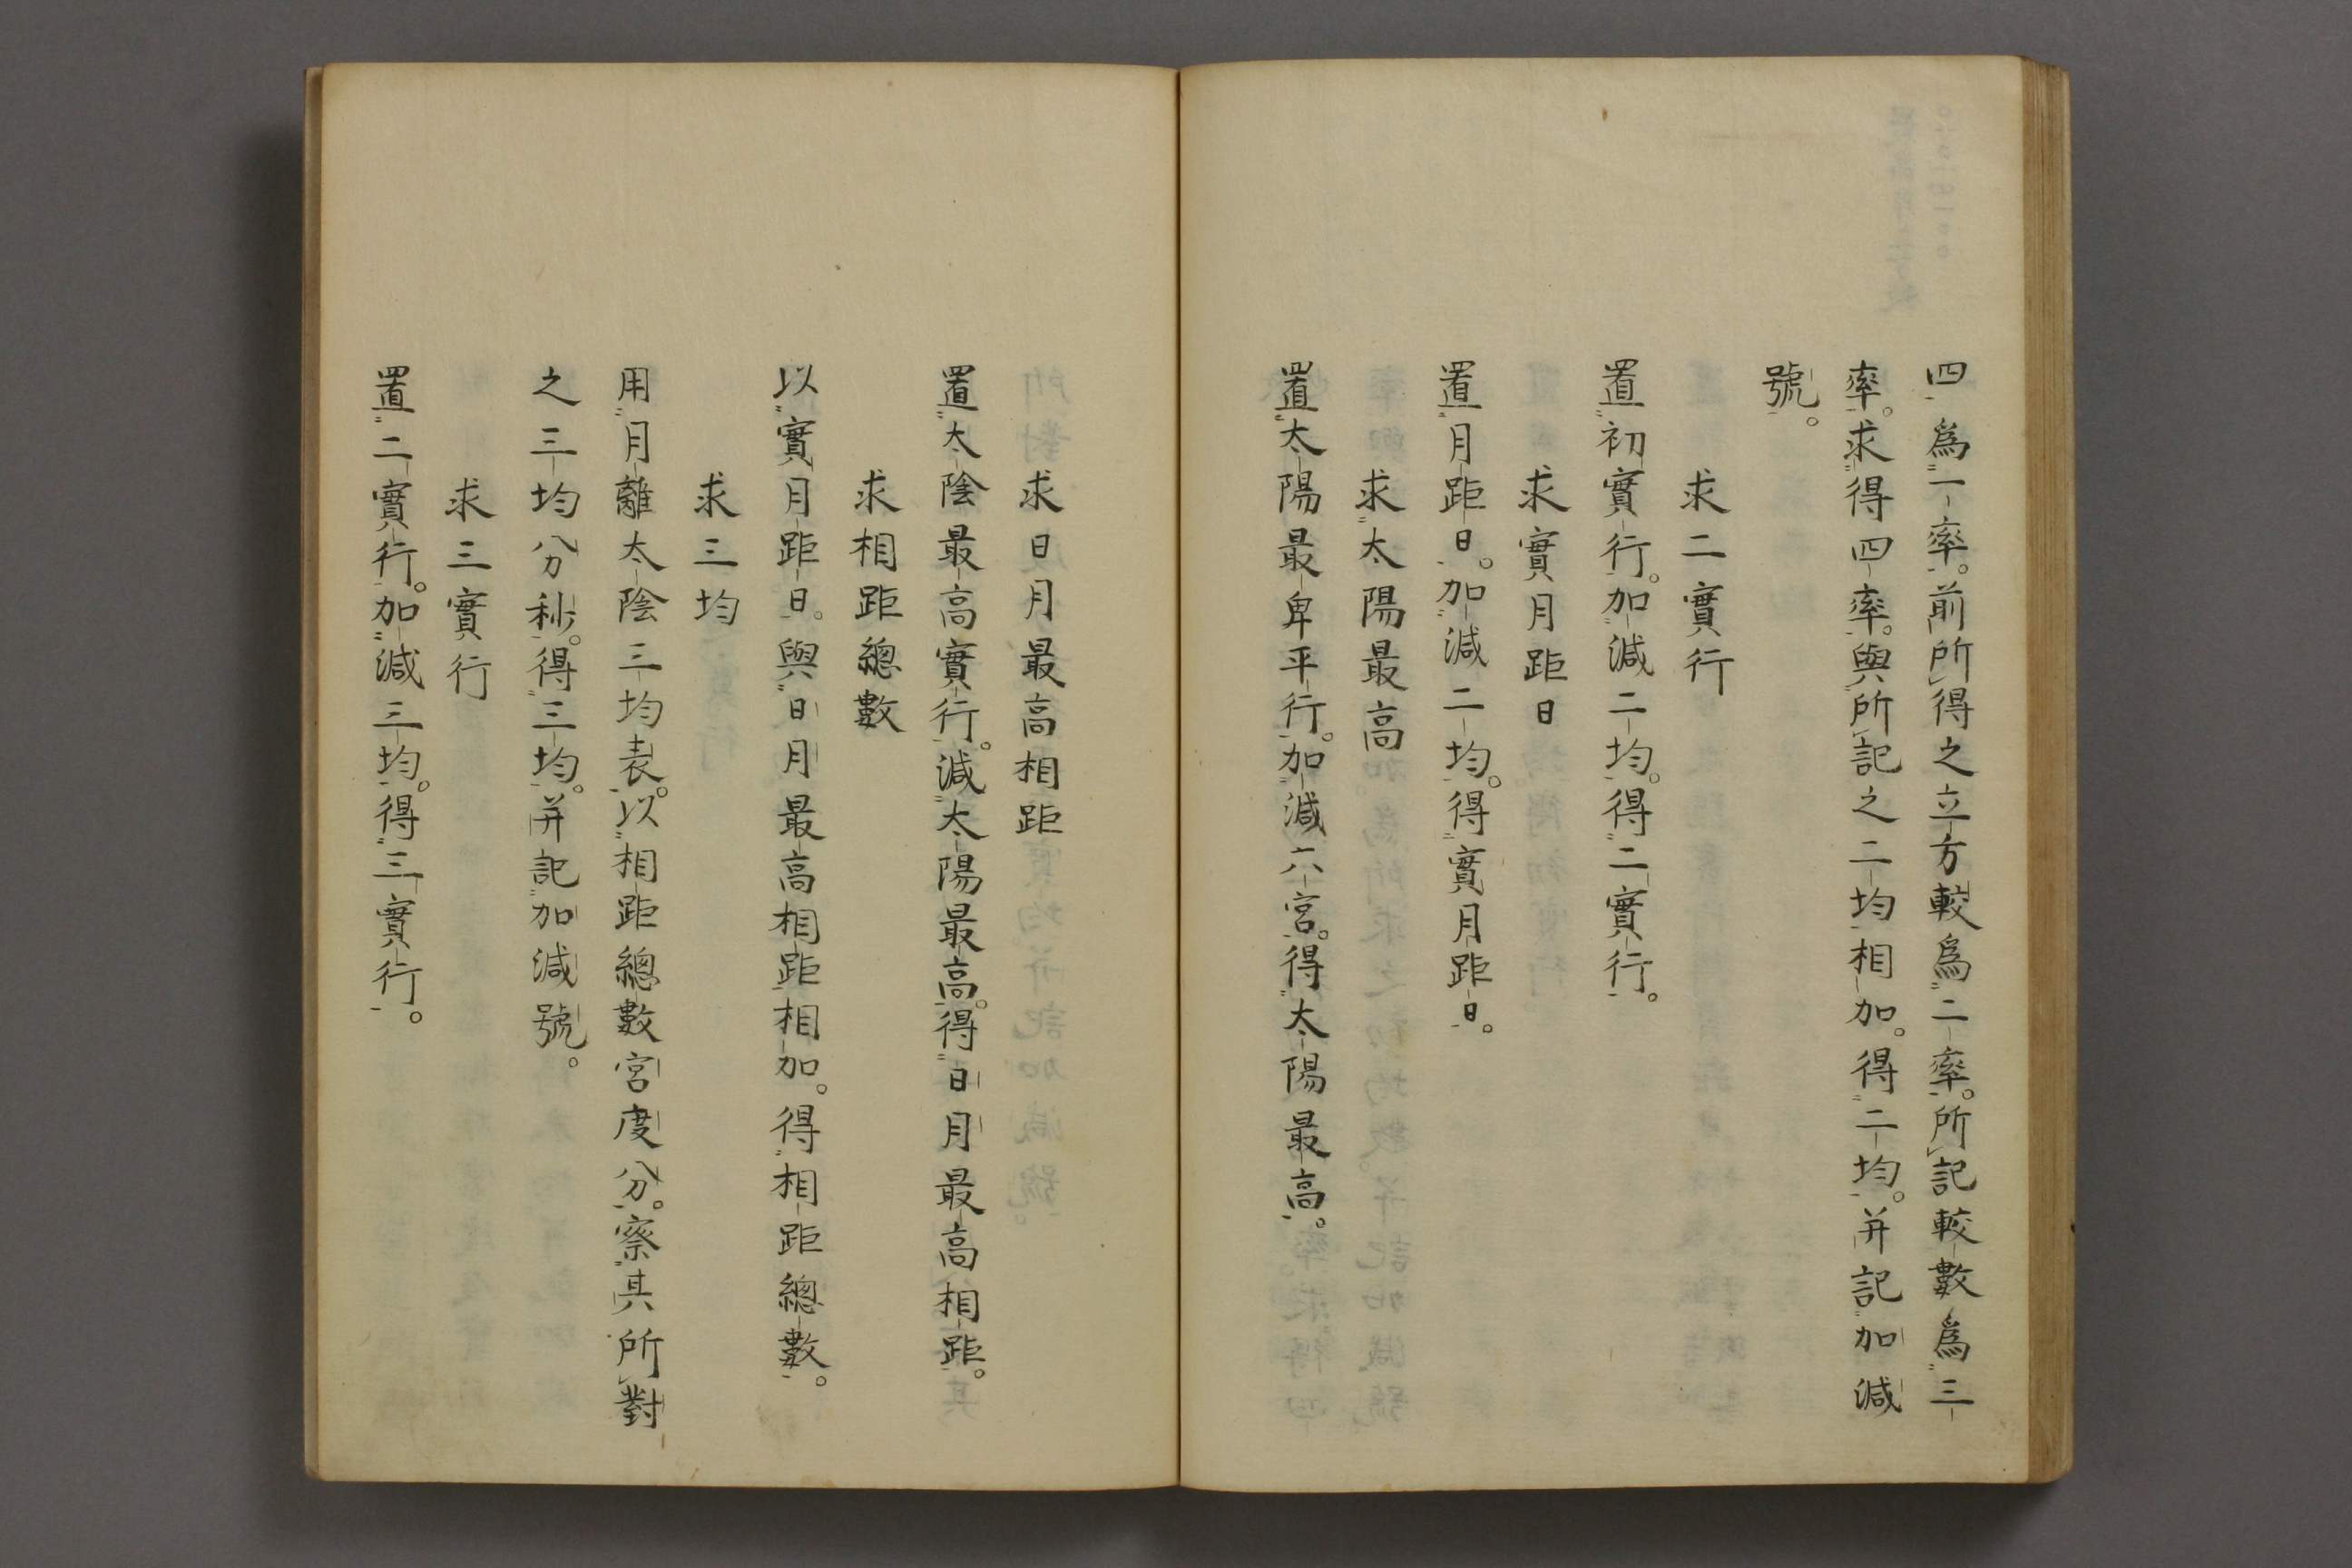 四爲一率。前所得之立方較爲二率。所記較數爲三
率。求得四率。與所記之二均相加。得二均。并記加減
號。
求二實行
置初實行。加減二均。得二實行。
求實月距日
置月距日。加減二均。得實月距日。
求太陽最高
置太陽最卑平行。加減六宮。得太陽最高。
求日月最高相距
置太陰最高實行。減太陽最高。得日月最高相距。
求相距總數
以實月距日。與日月最高相距相加。得相距總數。
求三均
用月離太陰三均表。以相距總數宮度分。察其所對
之三均分秒。得三均。并記加減號。
求三實行
置二實行。加減三均。得三實行。